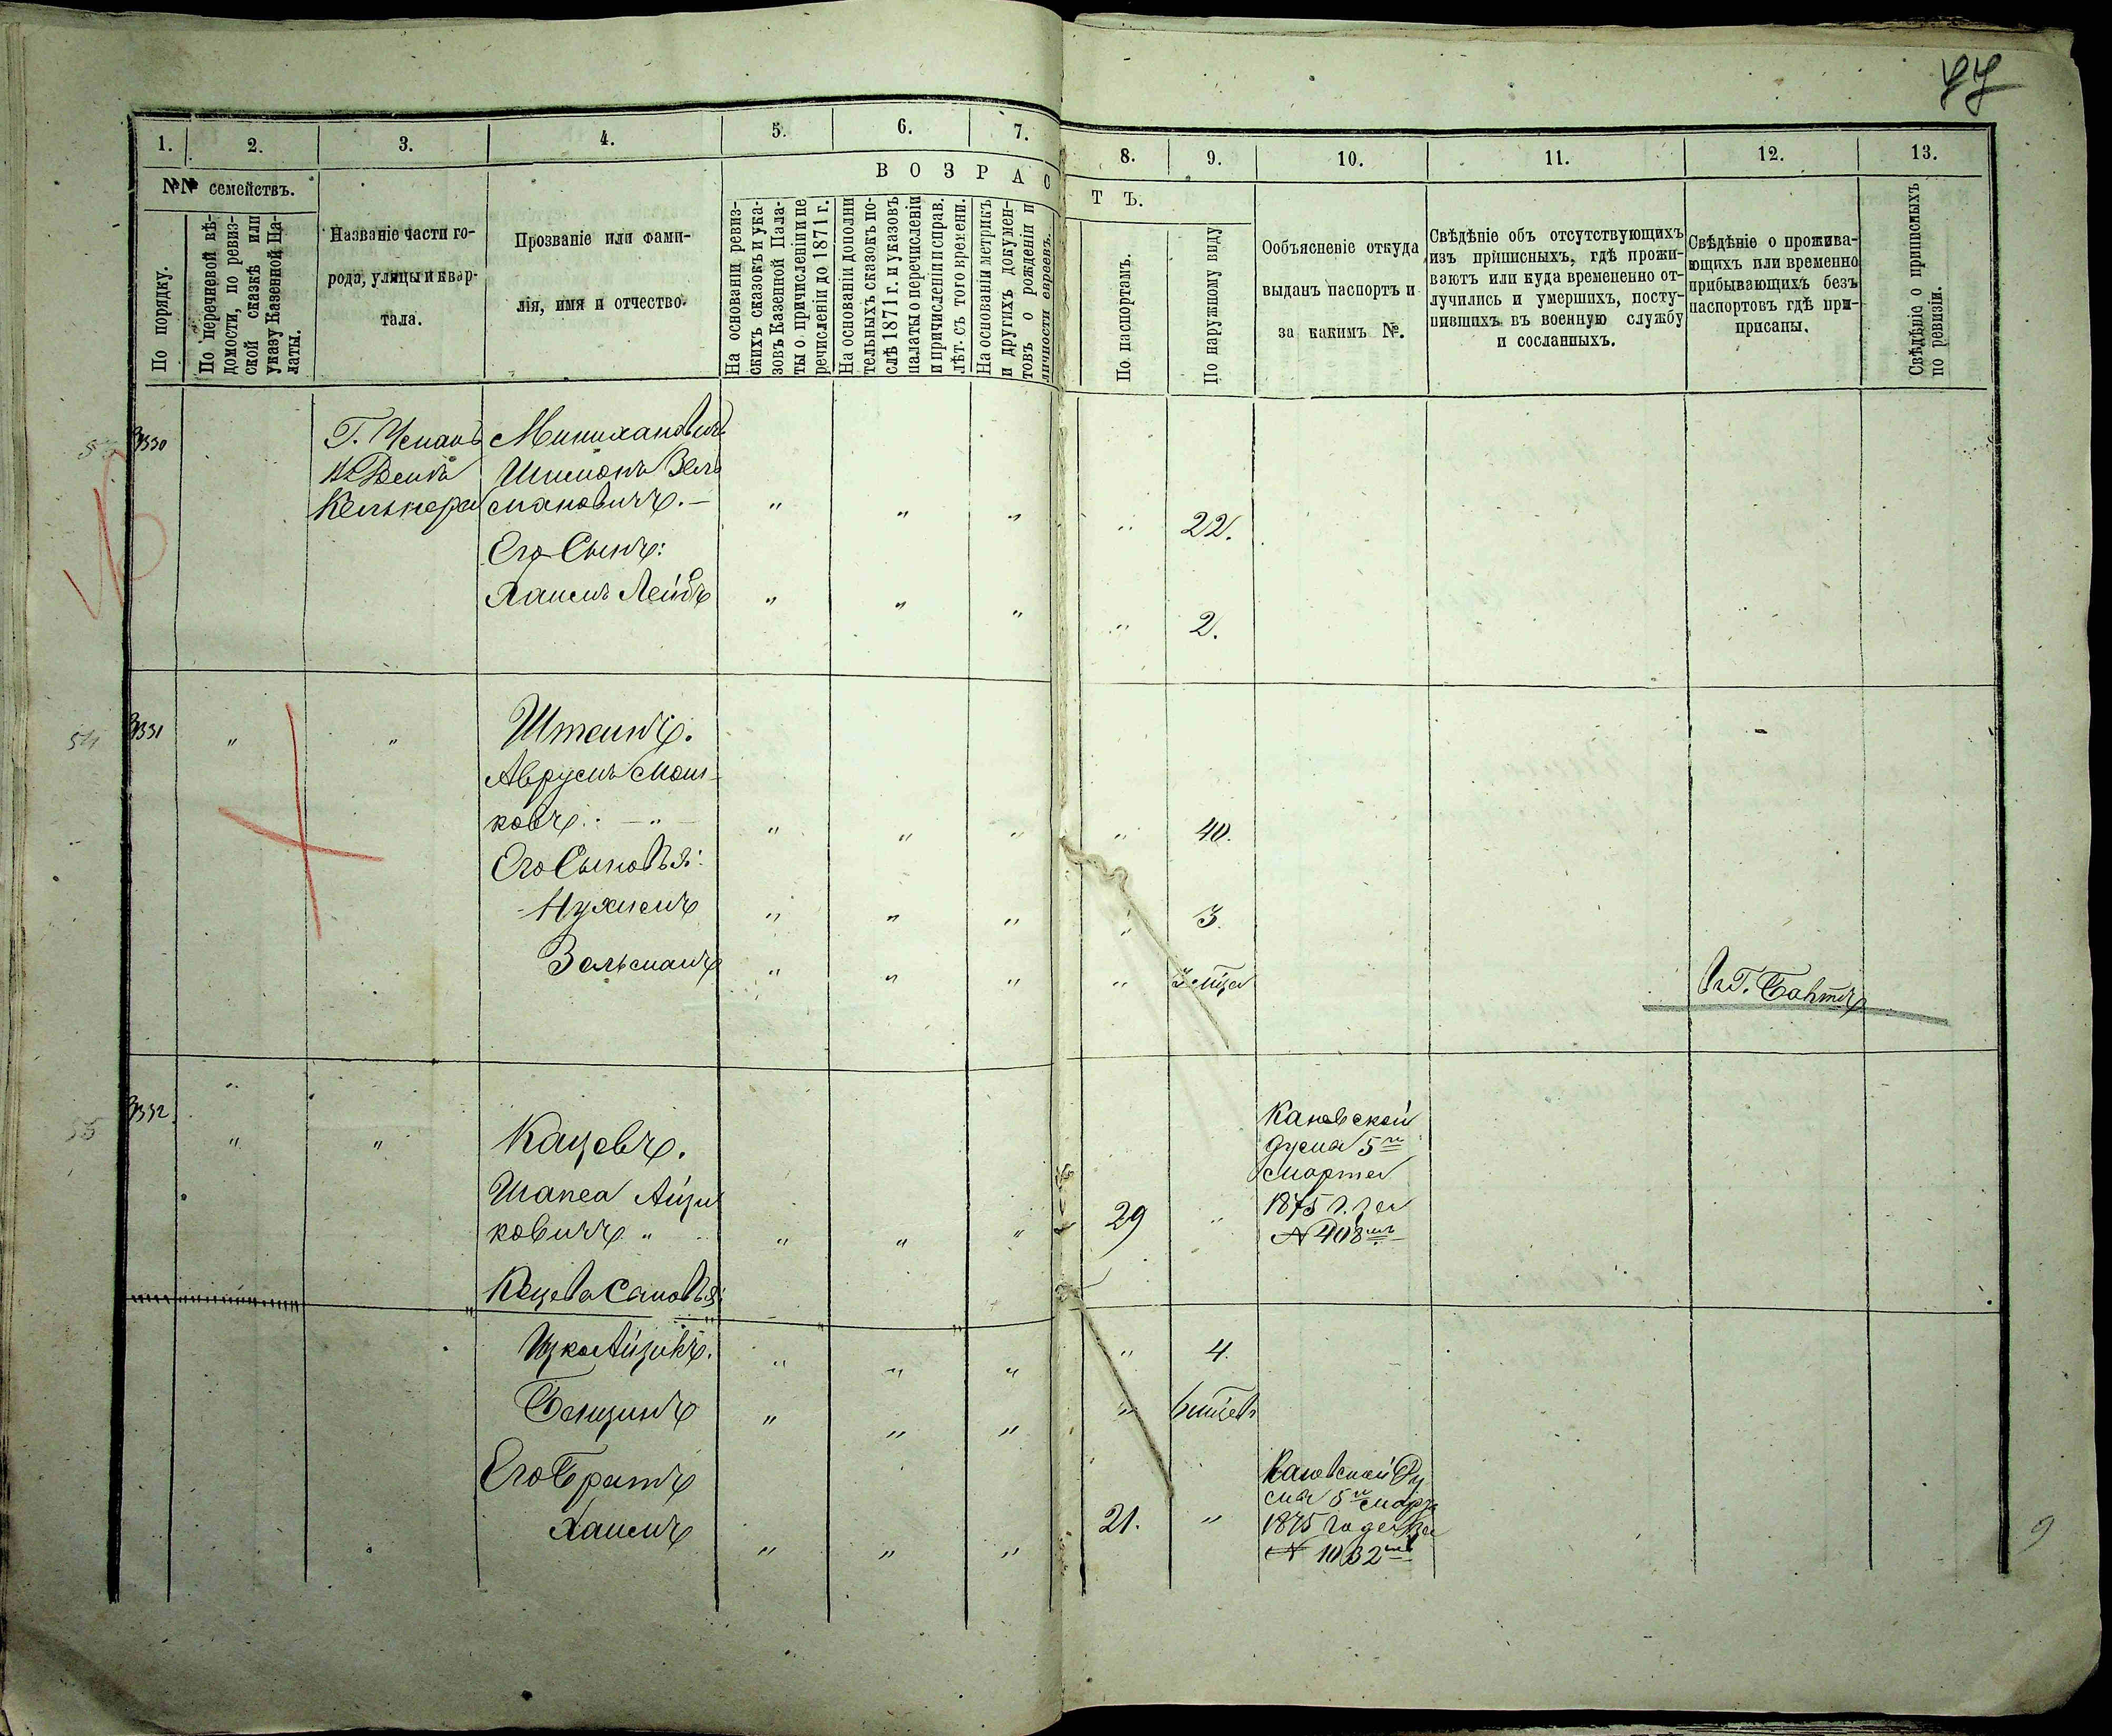 47
1. 2. 3. 4. 5. 6. 7. 8. 9. 10. 11. 12. 13.
№№ семействъ.
В О З Р А С Т Ъ.
По порядку.
По перечневой вѣ-
домости, по ревиз-
ской сказкѣ или
указу Казенной Па-
латы.
Названіе части го-
рода, улицы и квар-
тала.
Прозваніе или фами-
лія, имя и отчество.
На основаніи ревиз-
скихъ сказокъ и ука-
зовъ Казенной Пала-
ты о причисленіи и пе
речисленіи до 1871 г.
На основаніи дополни
тельныхъ сказокъ по-
слѣ 1871 г. и указовъ
палаты о перечисленіи
и причисленіи и справ.
лѣт. съ того времени.
На основаніи метрикъ
и другихъ докумен-
товъ о рожденіи и
личности евреевъ.
По паспортамъ.
По наружному виду
Ообъясненіе откуда
выданъ паспортъ и
за какимъ №.
Свѣдѣніе объ отсутствующихъ
изъ приписныхъ, гдѣ прожи-
ваютъ или куда времененно от-
лучились и умершихъ, посту-
пившихъ въ военную службу
и сосланныхъ.
Свѣдѣніе о прожива-
ющихъ или временно
прибывающихъ безъ
паспортовъ гдѣ при-
писаны.
Свѣдѣніе о приписныхъ
по ревизіи.
53 3330 Г. Умань Минихановичъ
Шимонъ Зель
смановичъ. — " " " " 22.
Его Сынъ:
Хаимъ Лейбъ " " " " 2.
54 3331 " " Штеинъ.
Аврумъ Мош-
ковъ. — " — " " " " 40.
Его Сыновья:
Нухимъ " " " " 3.
Зельманъ " " " " 3 мца Въ Г.
55 3332 " " Кацевъ.
Шапса Айзи
ковичъ " " " " 29 "
Каневской
Думы 5го
марта
1875 г. за
№ 408мъ
Кацева Сыновья:
Ицко Айзикъ. " " " " 4.
Бенционъ " " " " 6 мцевъ
Его Братъ
Хаимъ " " " 21. "
Каневской Ду
мы 5го марта
1875 года за
№ 1032мъ
9